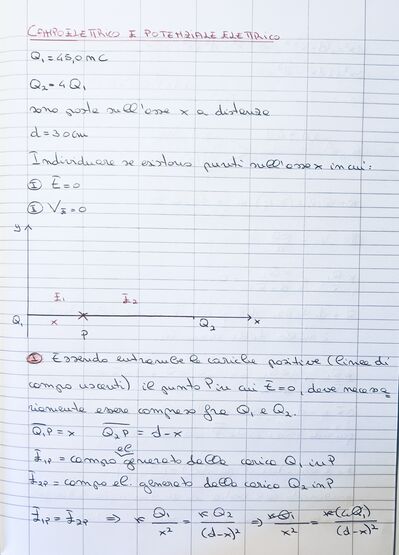 CAMPO ELETTRICO E POTENZIALE ELETTRICO
Q₁ = 45,0 nC
Q₂ = 4 Q₁
sono poste sull'asse x a distanza
d = 30 cm
Individuare se esistono punti sull'asse x in cui:
① E̅ = 0
② V = 0
y
E̅₁ E̅₂
Q₁ x P Q₂ x
① Essendo entrambe le cariche positive (linee di
campo uscenti) il punto P in cui E̅ = 0, deve necessa
riamente essere compreso fra Q₁ e Q₂.
Q₁P = x Q₂P = d - x
E̅₁P = campo el generato dalla carica Q₁ in P
E̅₂P = campo el. generato dalla carica Q₂ in P
E̅₁P = E̅₂P ⇒ κ Q₁/x² = κ Q₂/(d-x)² ⇒ κ Q₁/x² = κ(4Q₁)/(d-x)²